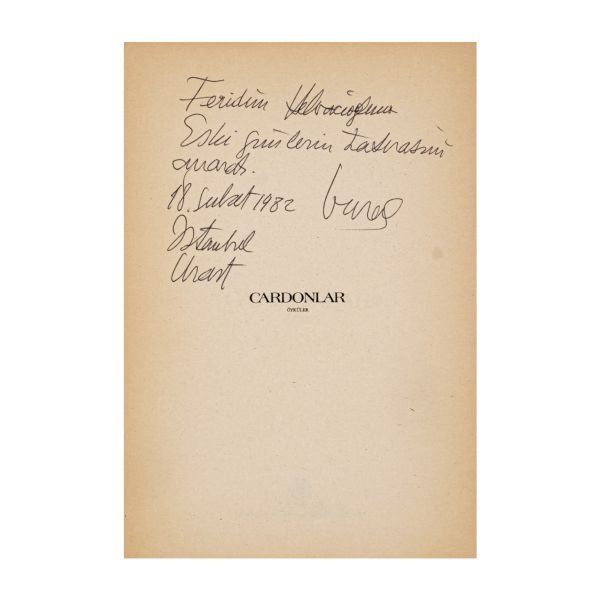 Feridun Helvacıoğluna
Eski günlerin hatırasını
18. Şubat 1982
İstanbul
CARDONLAR
ÖYKÜLER